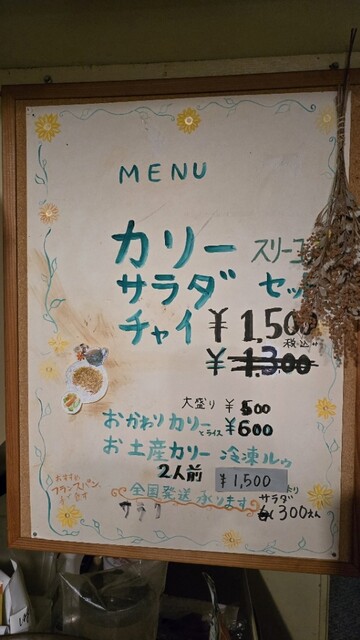 MENU
カリー スリーコ
サラダ セッ
チャイ ¥1,500
税込
¥1,300
大盛り ¥500
おかわりカリー とライス ¥600
お土産カリー 冷凍ルゥ
2人前 ¥1,500
全国発送承ります
おすすめ
フランスパン
サラダ
300えん